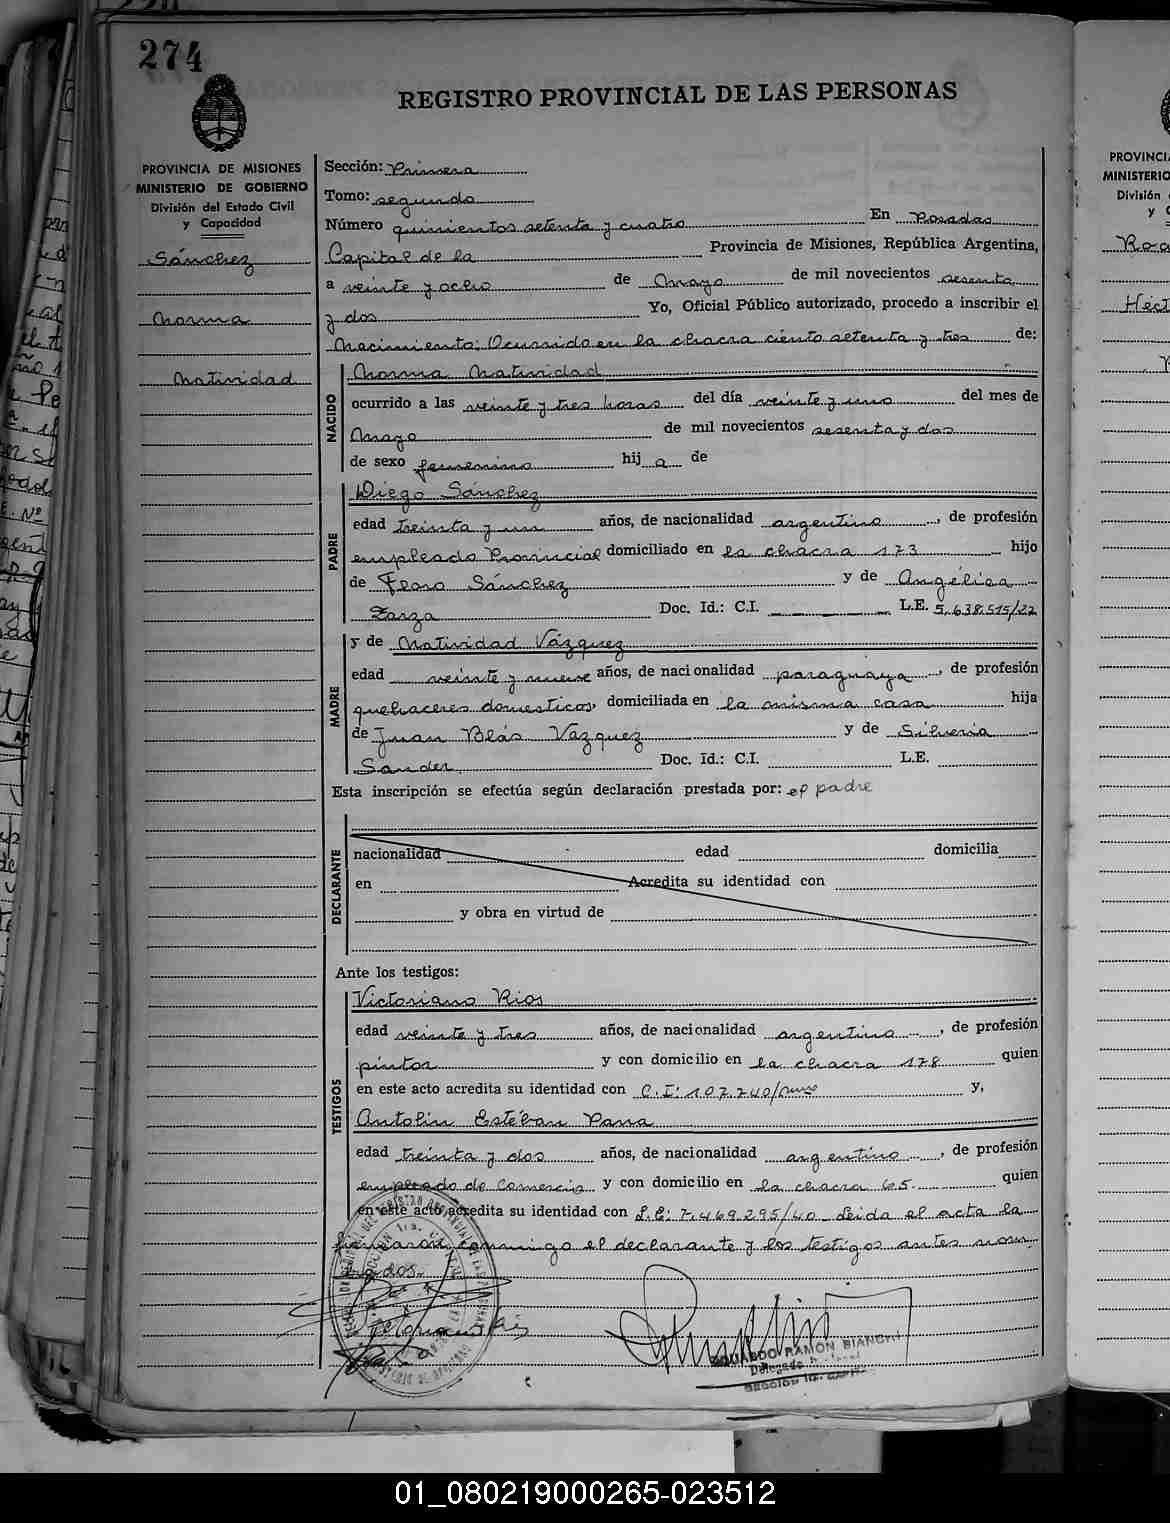 274
REGISTRO PROVINCIAL DE LAS PERSONAS
PROVINCIA DE MISIONES
MINISTERIO DE GOBIERNO
División del Estado Civil
y Capacidad
Sánchez
Norma
Natividad
Sección: Primera
Tomo: segundo
Número quinientos setenta y cuatro En Posadas
Capital de la Provincia de Misiones, República Argentina,
a veinte y ocho de Mayo de mil novecientos sesenta
y dos Yo, Oficial Público autorizado, procedo a inscribir el
Nacimiento: Ocurrido en la chacra ciento setenta y tres de:
NACIDO
Norma Natividad
ocurrido a las veinte y tres horas del día veinte y uno del mes de
Mayo de mil novecientos sesenta y dos
de sexo femenino hij a de
PADRE
Diego Sánchez
edad treinta y un años, de nacionalidad argentino, de profesión
empleado Provincial domiciliado en la chacra 173 hijo
de Floro Sánchez y de Angélica
Zarza Doc. Id.: C.I. L.E. 5.638.515/22
MADRE
y de Natividad Vázquez
edad veinte y nueve años, de nacionalidad paraguaya, de profesión
quehaceres domesticos, domiciliada en la misma casa hija
de Juan Blás Vázquez y de Silveria
Sander Doc. Id.: C.I. L.E.
Esta inscripción se efectúa según declaración prestada por: el padre
DECLARANTE
nacionalidad edad domicilia
en Acredita su identidad con
y obra en virtud de
Ante los testigos:
TESTIGOS
Victoriano Rios
edad veinte y tres años, de nacionalidad argentino, de profesión
pintor y con domicilio en la chacra 178 quien
en este acto acredita su identidad con C.I: 107.240/ y,
Antolin Estéban Parra
edad treinta y dos años, de nacionalidad argentino, de profesión
empleado de Comercio y con domicilio en la chacra 65. quien
en este acto acredita su identidad con L.E: 7.469.295/40 Leida el acta la
firmaron conmigo el declarante y los testigos antes nom
brados.
EDUARDO RAMON BIANCHI
Delegado
Sección 1ra.
PROVINCIA
MINISTERIO
División
y C
01_080219000265-023512